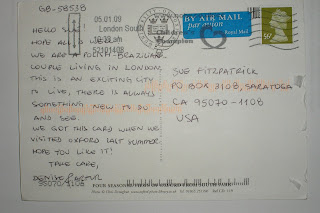 GB-58538
HELLO SUE,
HOPE ALL IS
WE ARE A POLISH-BRAZILIAN
COUPLE LIVING IN LONDON,
THIS IS AN EXCITING CITY
TO LIVE, THERE IS ALWAYS
SOMETHING NEW TO DO
AND SEE.
WE GOT THIS CARD WHEN WE
VISITED OXFORD LAST SUMMER
HOPE YOU LIKE IT!
TAKE CARE,
DENISE &
95070/1108
05.01.09
London South
52101408
BY AIR MAIL
par avion
Royal Mail
SUE FITZPATRICK
PO BOX 3108, SARATOGA
CA 95070-1108
USA